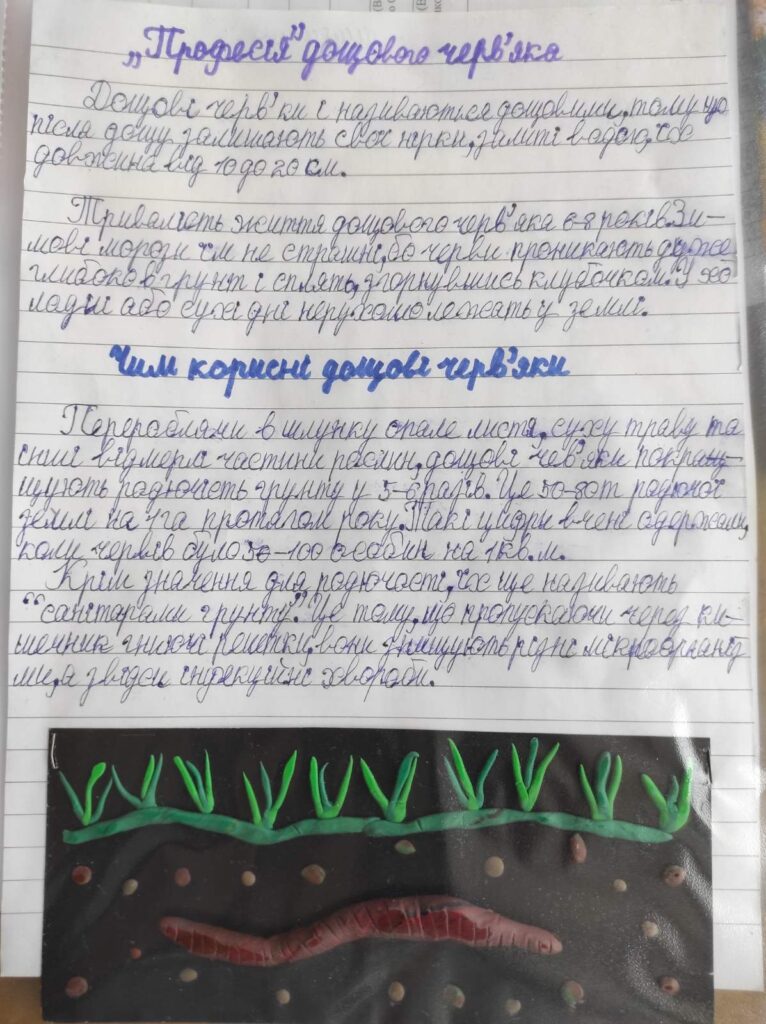 „Професія" дощового черв'яка
Дощові черв'ки і називаються дощовими, тому що
після дощу залишають свої нірки, залиті водою, їхо
довжина від 10 до 20 см.
Тривалість життя дощового черв'яка 6-8 років. Зи-
мові морози їм не страшні, бо черви проникають дуже
глибоко в грунт і сплять, згорнувшись клубочком. У хо
лодні або сухі дні нерухомо лежать у землі.
Чим корисні дощові черв'яки
Перероблями в шлунку опале листя, суху траву та
інші відмерлі частини рослин, дощові чев'яки покра-
щують родючість грунту у 5-6 разів. Це 50-80т родючої
землі на 1га протягом року. Такі цифри вчені одержали,
коли червів було 50-100 особин на 1кв.м.
Крім значення для родючості, їх ще називають
“санітарами грунту". Це тому, що пропускаючи через ки-
шечник гниючі рештки, вони знищують різні мікроорганіз
ми, а звідси інфекційні хвороби.